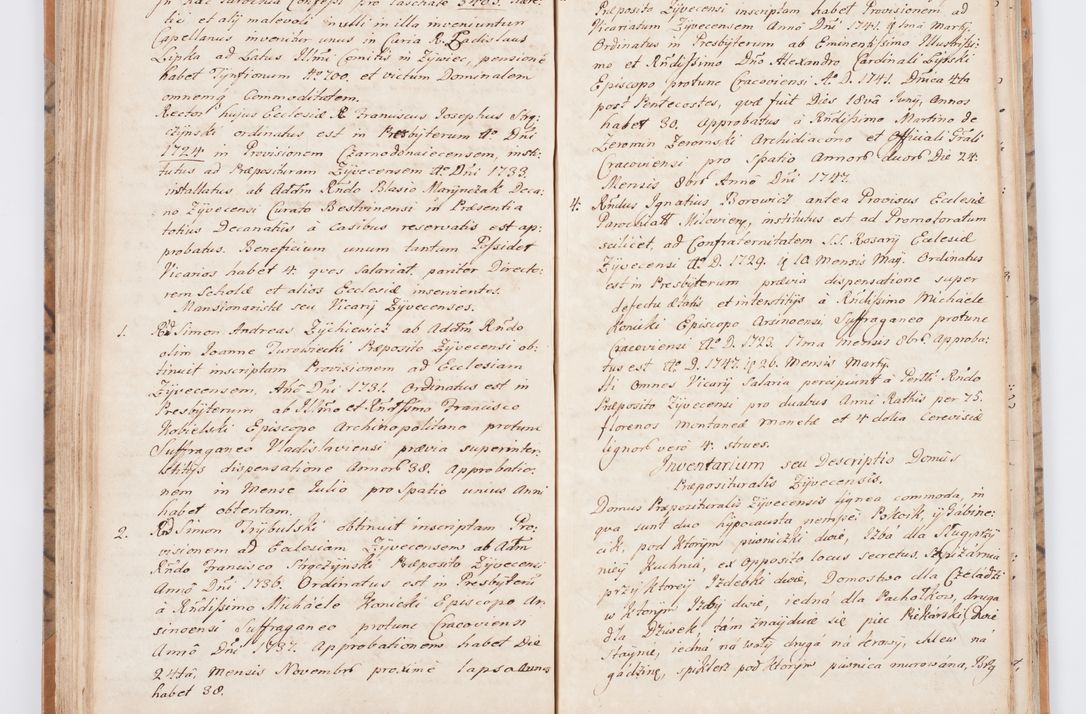 in hac Parochia Confessi pro Paschate 3463. Hære-
tici et alij malevoli nulli in illa inveniuntur
Capellanus invenitur unus in Curia R. Ladislaus
Lipka ad Latus Illmi Comitis in Zÿwiec, pensionē
habet Tynfionum No 700. et victum Dominalem
omnemq̨ Commoditatem.
Rector hujus Ecclesiæ R. Franciscus Josephus Strą-
czÿnski ordinatus est in Presbÿterum Ao Dñi
1724. in Provisionem Czarnodonaiecensem, insti-
tutus ad Præposituram Zÿvecensem Ao Dñi 1733.
installatus ab Adm Rñdo Blasio Marÿnczak Deca-
no Zÿvecensi Curato Bestvinensi in Præsentia
totius Decanatus à casibus reservatis est ap-
probatus. Beneficium unum tantum Possidet
Vicarios habet 4. quos Salariat pariter Directo-
rem Scholæ et alios Ecclesiæ inservientes.
Mansionarii seu Vicarÿ Zÿvecenses.
1. Rd Simon Andreas Zÿchiewicz ab Adm Rñdo
olim Joanne Turowiecki Præposito Zÿvecensi ob-
tinuit inscriptam Provisionem ad Ecclesiam
Zÿvecensem, Anō Dñi 1731. Ordinatus est in
Presbÿterum ab Illmo et Rñdissimo Francisco
Kobielski Episcopo Archinopolitano protunc
Suffraganeo Vladislaviensi prævia superinter-
stitÿs dispensatione Annorb 38. Approbatio-
nem in Mense Julio pro Spatio unius Anni
habet obtentam.
2. Rd Simon Trÿbulski obtinuit inscriptam Pro-
visionem ad Ecclesiam Zÿvecensem ab Adm
Rñdo Francisco Stręczÿnski Præposito Zÿvecensi
Annō Dñi 1736. Ordinatus est in Presbÿterū
à Rñdissimo Michaële Kunicki Episcopo Ar-
sinoensi Suffraganeo protunc Cracoviensi
Annō Dñi 1737. Approbationem habet Die
24ta, Mensis Novembrb proximè lapso Annū
habet 38.
Præposito Zÿvecensi inscriptam habet Provisionem ad
Vicariatum Zÿvecensem Anno Dñi 1741. 9 Imā Martÿ.
Ordinatus in Presbÿterum ab Eminentissimo Illustrissi-
mo et Rñdissimo Dño Alexandro Cardinali Lipski
Episcopo protunc Cracoviensi Ao D. 1741. Dnica 4ta
post Pentecostes, quæ fuit Dies 18va Junÿ, Annos
habet 30. Approbatus à Rñdissimo Martino de
Zeromin Zeromski Archidiacono et Officiali Grāli
Cracoviensi pro Spatio Annorb duorb Die 24.
Mensis 8brb Annō Dñi 1747.
4. Rñdus Ignatius Borowicz antea Provisus Ecclesiæ
Parochialt Milovien, institutus est ad Promotoratum
scilicet, ad Confraternitatem S.S. Rosarÿ Ecclesiæ
Zÿvecensi Ao D. 1729. q̨ 10. Mensis Maÿ. Ordinatus
est in Presbÿterum prævia dispensatione super
defectu ætatis et interstitÿs à Rñdissimo Michaële
Konicki Episcopo Arsinoensi Suffraganeo protunc
Cracoviensi Ao D. 1723. 17ma Mensis 8brb Approba-
tus est Ao D. 1747. q̨ 26. Mensis Martÿ.
Hi Omnes Vicarÿ Salaria percipiunt à Perill. Rñdo
Præposito Zÿvecensi pro duabus Anni Rathis per 75.
florenos Montanæ Monetæ et 4 dolia Cerevisiæ
lignorb verò 4. strues.
Inventarium seu Descriptio Domûs
Præposituralis Zÿvecensis.
Domus Præposituralis Zÿvecensis lignea commoda, in
qva sunt duo hÿpocausta nempè: Pokoik, ÿ Gabine-
cik, pod Ktorÿm piwniczki dwie, Izba dla Sług przÿ
nieÿ Kuchnia, ex opposito locus secretus. Spizarnia
przÿ Ktoreÿ Izdebki dwie, Domostwo dla Czeladzi
w Ktorÿm Izbÿ dwie, iedna dla Pachołkow, druga
dla Dziwek, tam znaÿduie się piec Piekarski, dwie
Staÿnie, iedna ná wołÿ drugá ná krowÿ, chlew ná
gádzinę, spiklerz pod Ktorÿm piwnica murowána, Przÿ